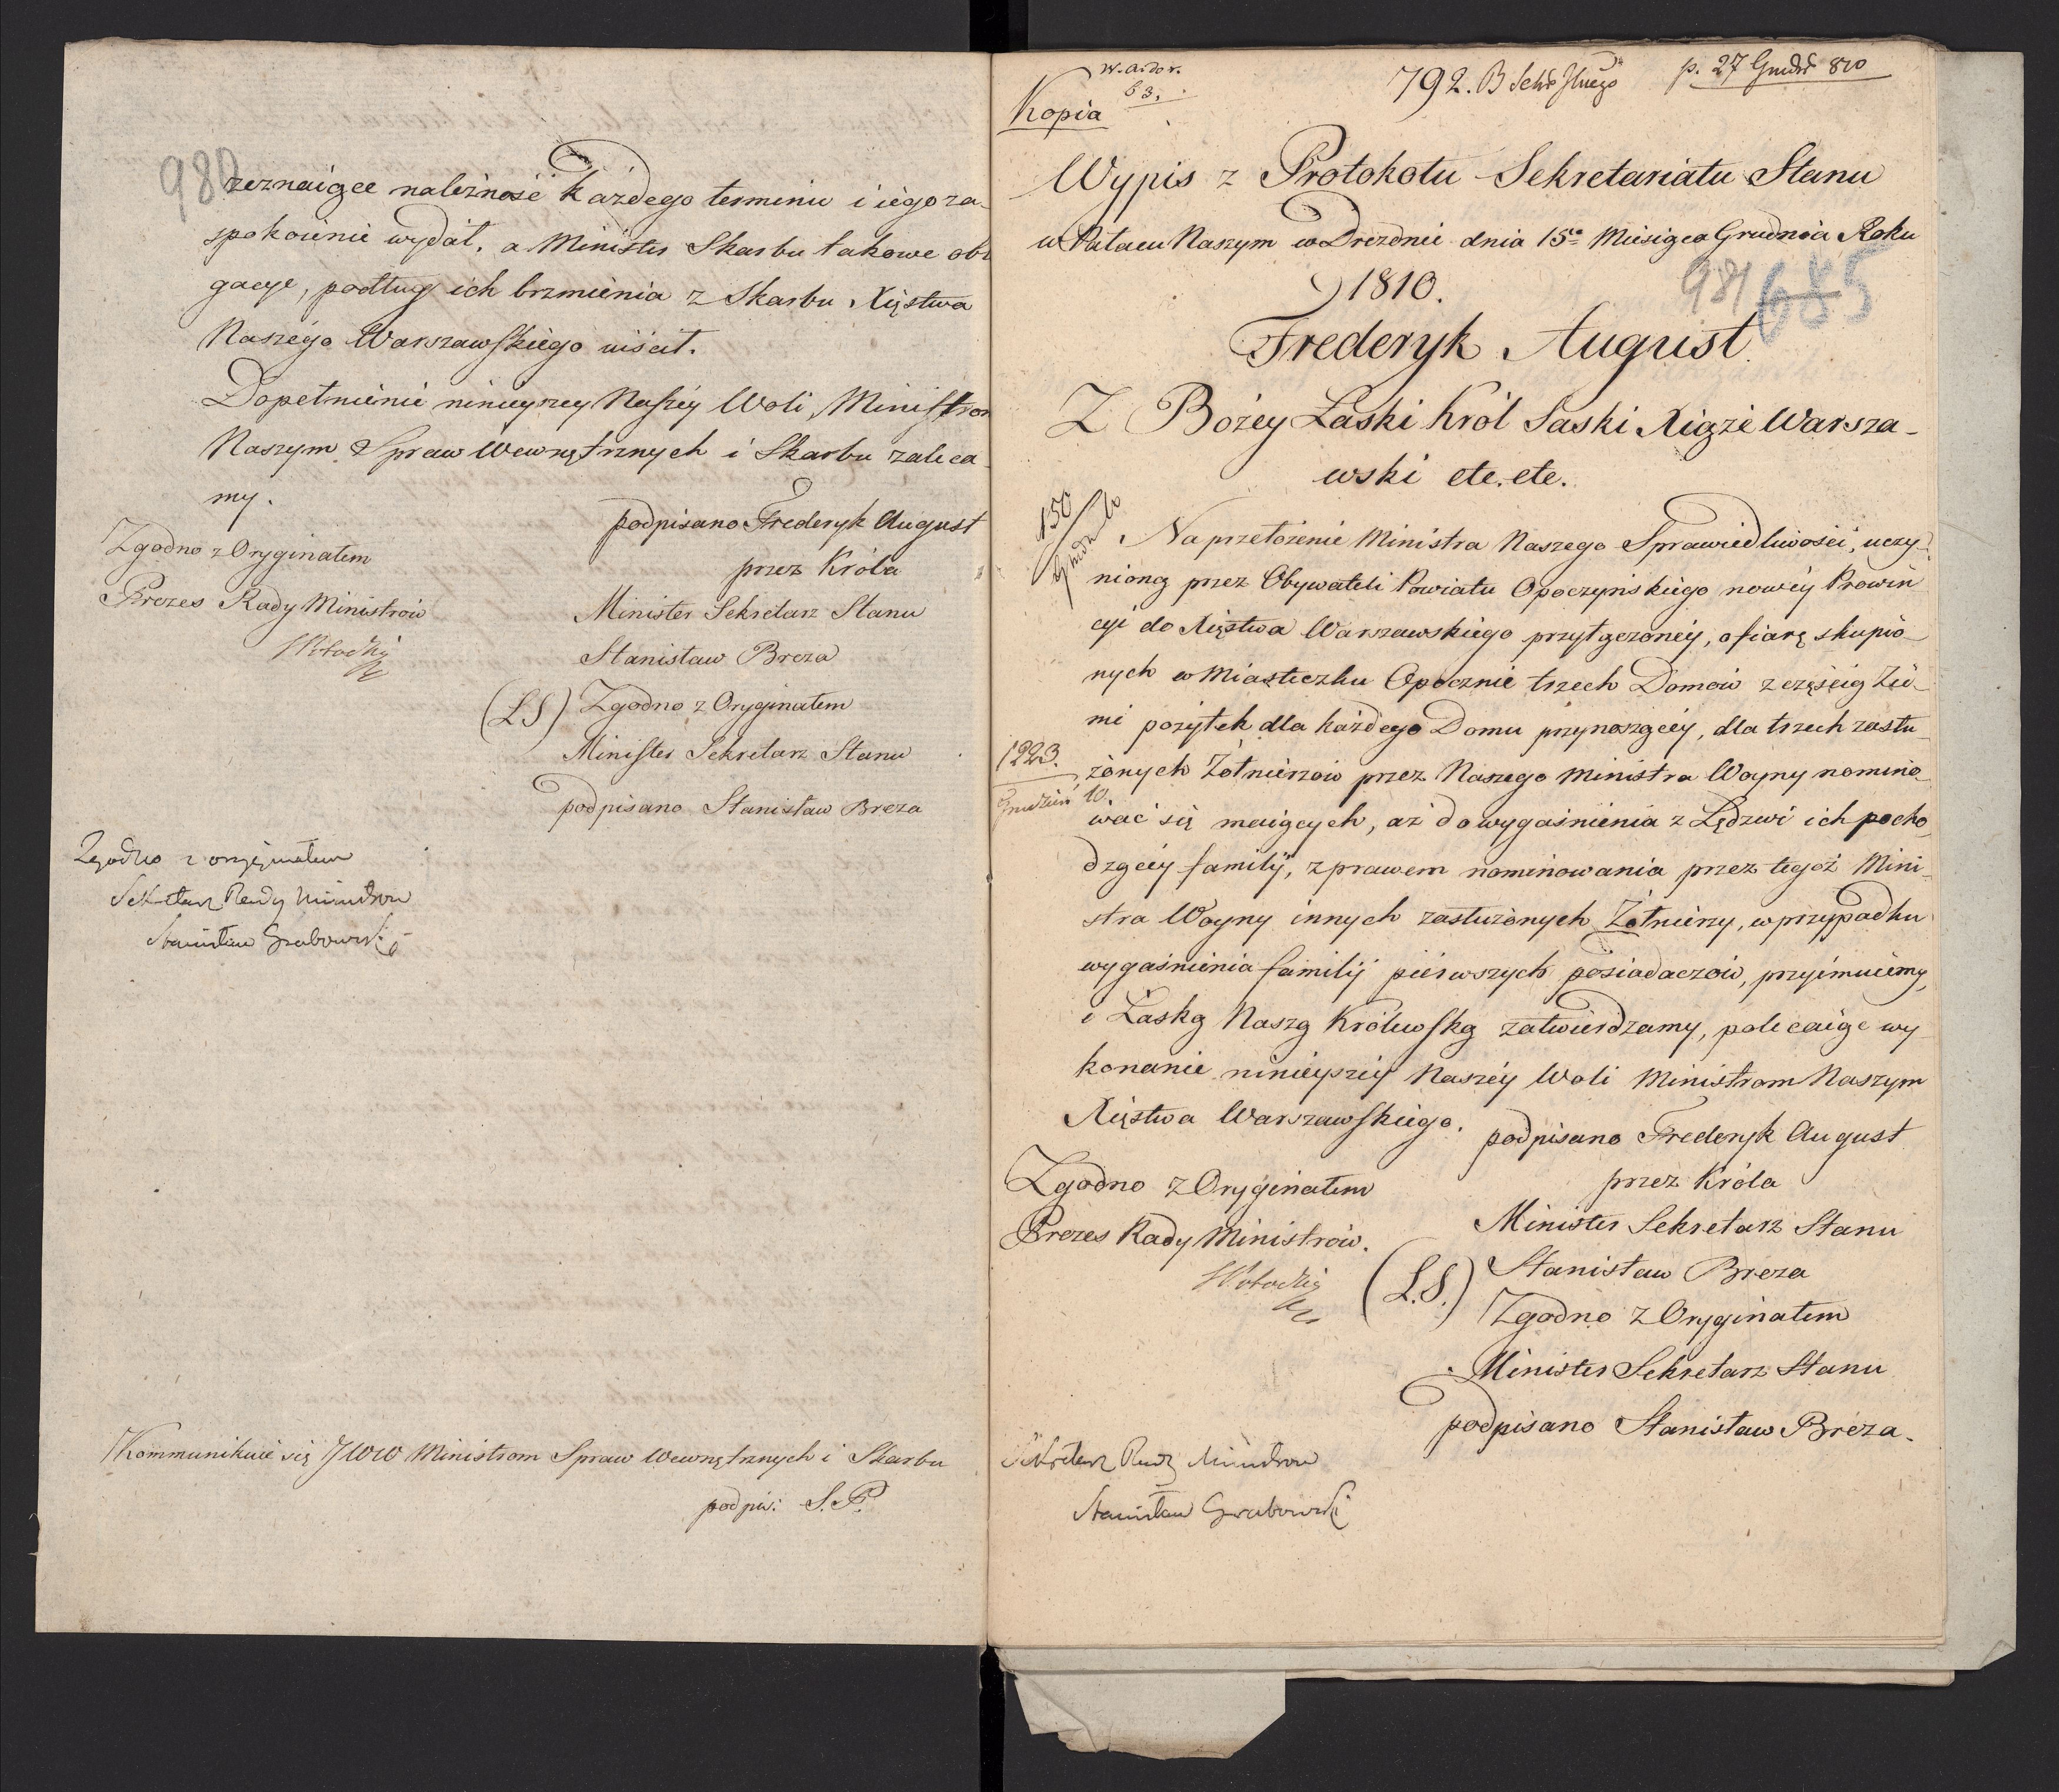 980
zeznaiące należność każdego terminu i iego za-
spokoienie wydał, a Minister Skarbu takowe obli
gacye, podług ich brzmienia z Skarbu Xięstwa
Naszégo Warszawskiégo uiścił.
Dopełnienie ninieyszey Naszéy Woli, Ministrom
Naszym Spraw Wewnętrznych i Skarbu zaleca
my.
podpisano Frederyk August
Zgodno z Oryginałem
przez Króla
Prezes Rady Ministrów
Minister Sekretarz Stanu
Stanisław Breza
(LS) Zgodno z Oryginałem
Minister Sekretarz Stanu
podpisano Stanisław Breza
Zgodno z oryginałem
Sekretarz Rady Ministrow
Stanisław Grabowski
Kommunikuie się JWW Ministrom Spraw Wewnętrznych i Skarbu
podpis: S. P.
63.
792. B p. 27 Grud 810
Kopia
Wypis z Protokołu Sekretariatu Stanu
w Pałacu Naszym w Dreznie dnia 15º Miesiąca Grudnia Roku
1810.
981 685
Frederyk August
Z Bożéy Łaski Król Saski Xiąże Warsza-
wski etc. etc.
150
Na przełożenie Ministra Naszego Sprawiedliwości, uczy-
nioną przez Obywateli Powiatu Opoczyńskiego nowéy Prowin
cyi do Xięstwa Warszawskiego przyłączonéy, ofiarę skupio-
nych w Miasteczku Opocznie trzech Domów z częścią Zie-
mi pożytek dla każdego Domu przynoszącéy, dla trzech zasłu
1223.
żonych Żołnierzów przez Naszego Ministra Woyny nomino-
Grudzień 10.
wać się maiących, aż do wygaśnienia z Lędzwi ich pocho
dzącéy familij, z prawem nominowania przez tegoż Mini-
stra Woyny innych zasłużonych Żołnierzy, w przypadku
wygaśnienia familij piérwszych posiadaczów, przyimuiemy,
i Łaską Naszą Królewską zatwierdzamy, polecaiąc wy-
konanie ninieyszéy Naszéy Woli Ministrom Naszym
Xięstwa Warszawskiégo.
podpisano Frederyk August
Zgodno z Oryginałem
przez Króla
Prezes Rady Ministrów.
Minister Sekretarz Stanu
(L.S.) Stanisław Breza
Zgodno z Oryginałem
Minister Sekretarz Stanu
podpisano Stanisław Breza.
Sekretarz Rady Ministrow
Stanisław Grabowski